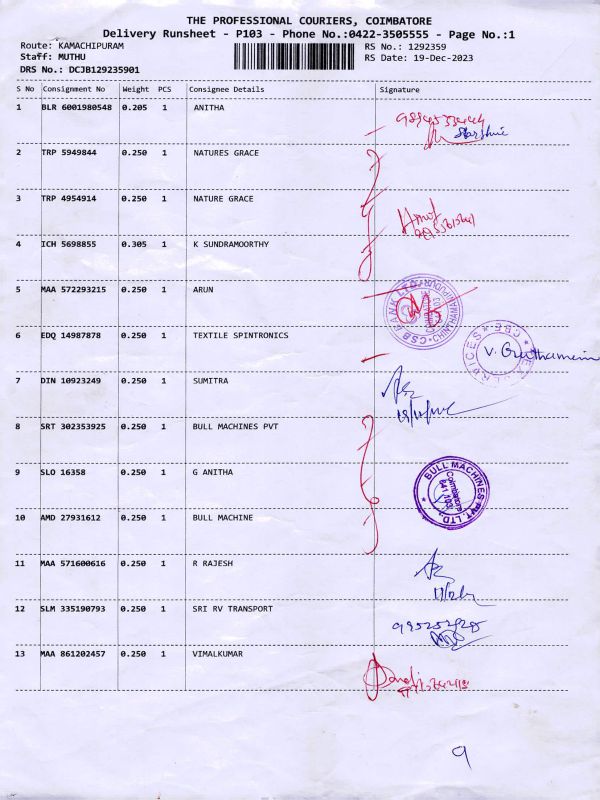 THE PROFESSIONAL COURIERS, COIMBATORE
Delivery Runsheet - P103 - Phone No.:0422-3505555 - Page No.:1
Route: KAMACHIPURAM RS No.: 1292359
Staff: MUTHU RS Date: 19-Dec-2023
DRS No.: DCJB129235901
S No Consignment No Weight PCS Consignee Details Signature
1 BLR 6001980548 0.205 1 ANITHA
2 TRP 5949844 0.250 1 NATURES GRACE
3 TRP 4954914 0.250 1 NATURE GRACE
4 ICH 5698855 0.305 1 K SUNDRAMOORTHY
5 MAA 572293215 0.250 1 ARUN
CSB BANK LTD.
6 EDQ 14987878 0.250 1 TEXTILE SPINTRONICS
7 DIN 10923249 0.250 1 SUMITRA
8 SRT 302353925 0.250 1 BULL MACHINES PVT
9 SLO 16358 0.250 1 G ANITHA
BULL MACHINES PVT. LTD.
Coimbatore
10 AMD 27931612 0.250 1 BULL MACHINE
11 MAA 571600616 0.250 1 R RAJESH
12 SLM 335190793 0.250 1 SRI RV TRANSPORT
13 MAA 861202457 0.250 1 VIMALKUMAR
9